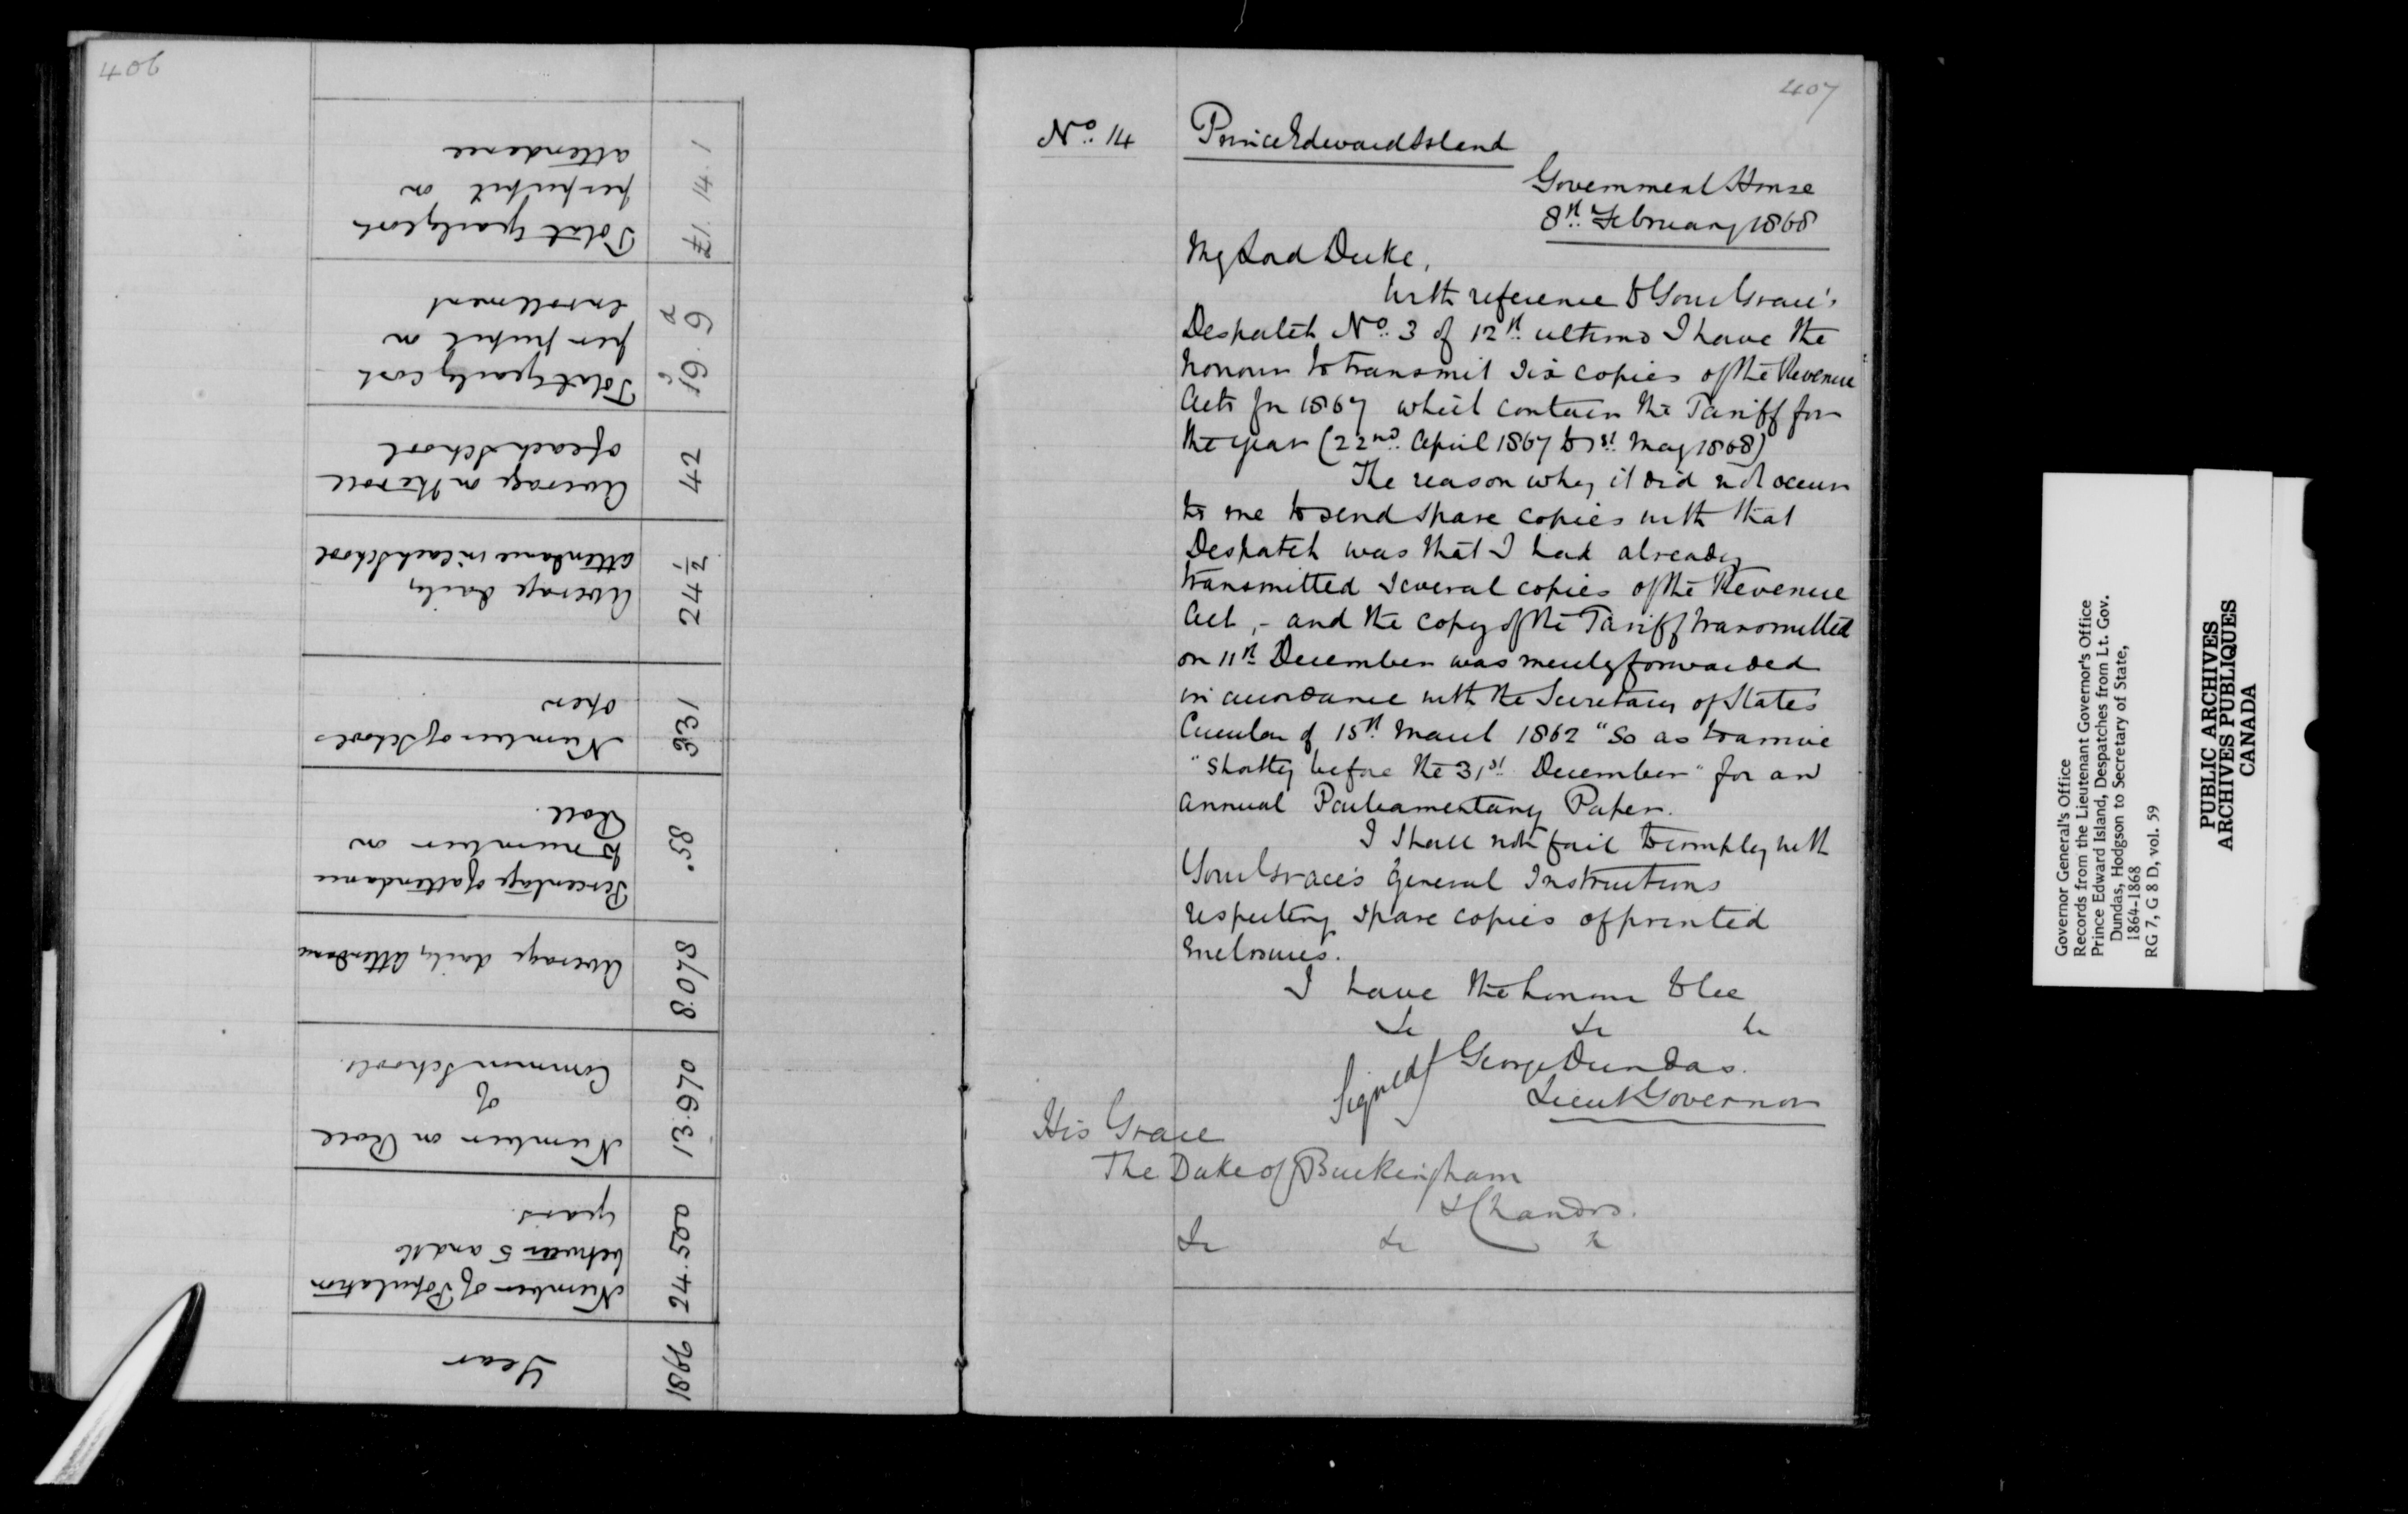 406
Year
1866
Number of Population
between 5 and 16
years.
24.500
Number on Roll
of
Common Schools.
13.970
Average daily Attendance
8.078
Percentage of attendance
to number on
Roll.
.58
Number of Schools
open
331
Average daily
attendance in each School
24 1/2
Average on the roll
of each School
42
Total yearly cost
per pupil on
enrollment
s d
19. 9
Total yearly cost
per pupil on
attendance
£1. 14. 1
407
No. 14
Prince Edward Island
Government House
8th February 1868
My Lord Duke,
With reference to Your Grace's
Despatch No. 3 of 12th ultimo I have the
honour to transmit six copies of the Revenue
Acts for 1867 which contain the Tariff for
the year (22nd April 1867 to 1st May 1868)
The reason why it did not occur
to me to send spare copies with that
Despatch was that I had already
transmitted several copies of the Revenue
Act, - and the copy of the Tariff transmitted
on 11th December was merely forwarded
in accordance with the Secretary of States
Circular of 15th March 1862 "So as to arrive
"shortly before the 31st December" for an
annual Parliamentary Paper.
I shall not fail to comply with
Your Grace's general Instructions
respecting spare copies of printed
enclosures.
I have the honour to be
&c &c &c
Signed/ George Dundas.
Lieut Governor
His Grace
The Duke of Buckingham
& Chandos.
&c &c &c
Governor General's Office
Records from the Lieutenant Governor's Office
Prince Edward Island, Despatches from Lt. Gov.
Dundas, Hodgson to Secretary of State,
1864-1868
RG 7, G 8 D, vol. 59
PUBLIC ARCHIVES
ARCHIVES PUBLIQUES
CANADA